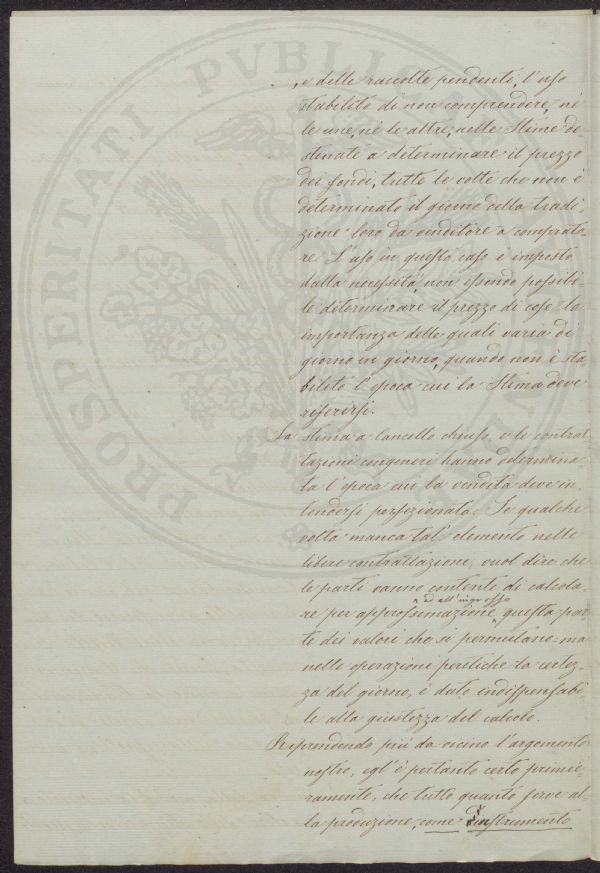 , e delle raccolte pendenti, l'uso
stabilito di non comprendere, nè
le une, nè le altre, nelle Stime de
stinate a determinare il prezzo
dei fondi, tutte le volte che non è
determinato il giorno della tradi,
zione loro da venditore a comprato
re. L'uso in questo caso è imposto
dalla necessità, non essendo possibi
le determinare il prezzo di cose la
importanza delle quali varia di
giorno in giorno, quando non è sta,
bilita l'epoca cui la Stima deve
riferirsi.
La stima a cancello chiuso, e le contrat
tazioni congeneri hanno determina
ta l'epoca cui la vendita deve in
tendersi perfezionata. Se qualche
volta manca tal' elemento nelle
libere contrattazioni, vuol dire che
le parti vanno contente di calcola
ed all'ingrosso
re per approssimazione questa par
te dei valori che si permutano: ma
nelle operazioni peritiche la certez,
za del giorno, è dato indispensabi
le alla giustezza del calcolo.
Riprendendo più da vicino l'argomento
nostro, egl'è pertanto certo primie,
ramente, che tutto quanto serve al
la produzione, come instrumento
PROSPERITATI PVBLICAE